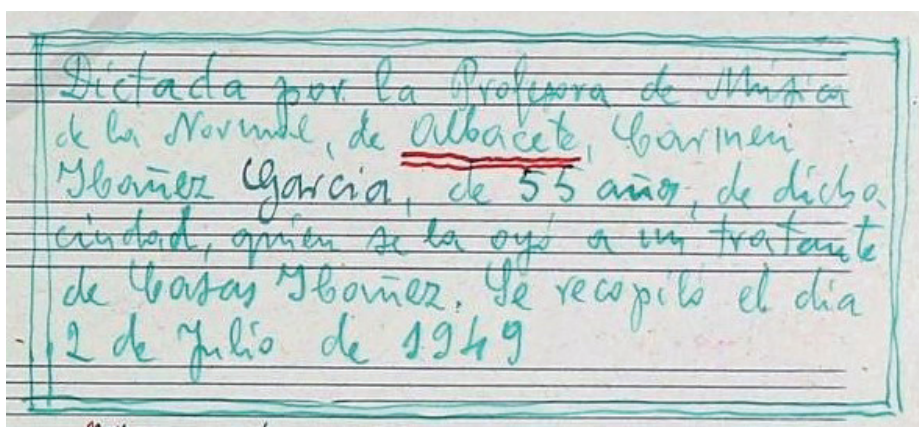 Dictada por la Profesora de Música
de la Normal, de Albacete, Carmen
Ibañez García, de 55 años, de dicha
ciudad, quien se la oyó a un tratante
de Casas Ibañez. Se recopiló el día
2 de Julio de 1949